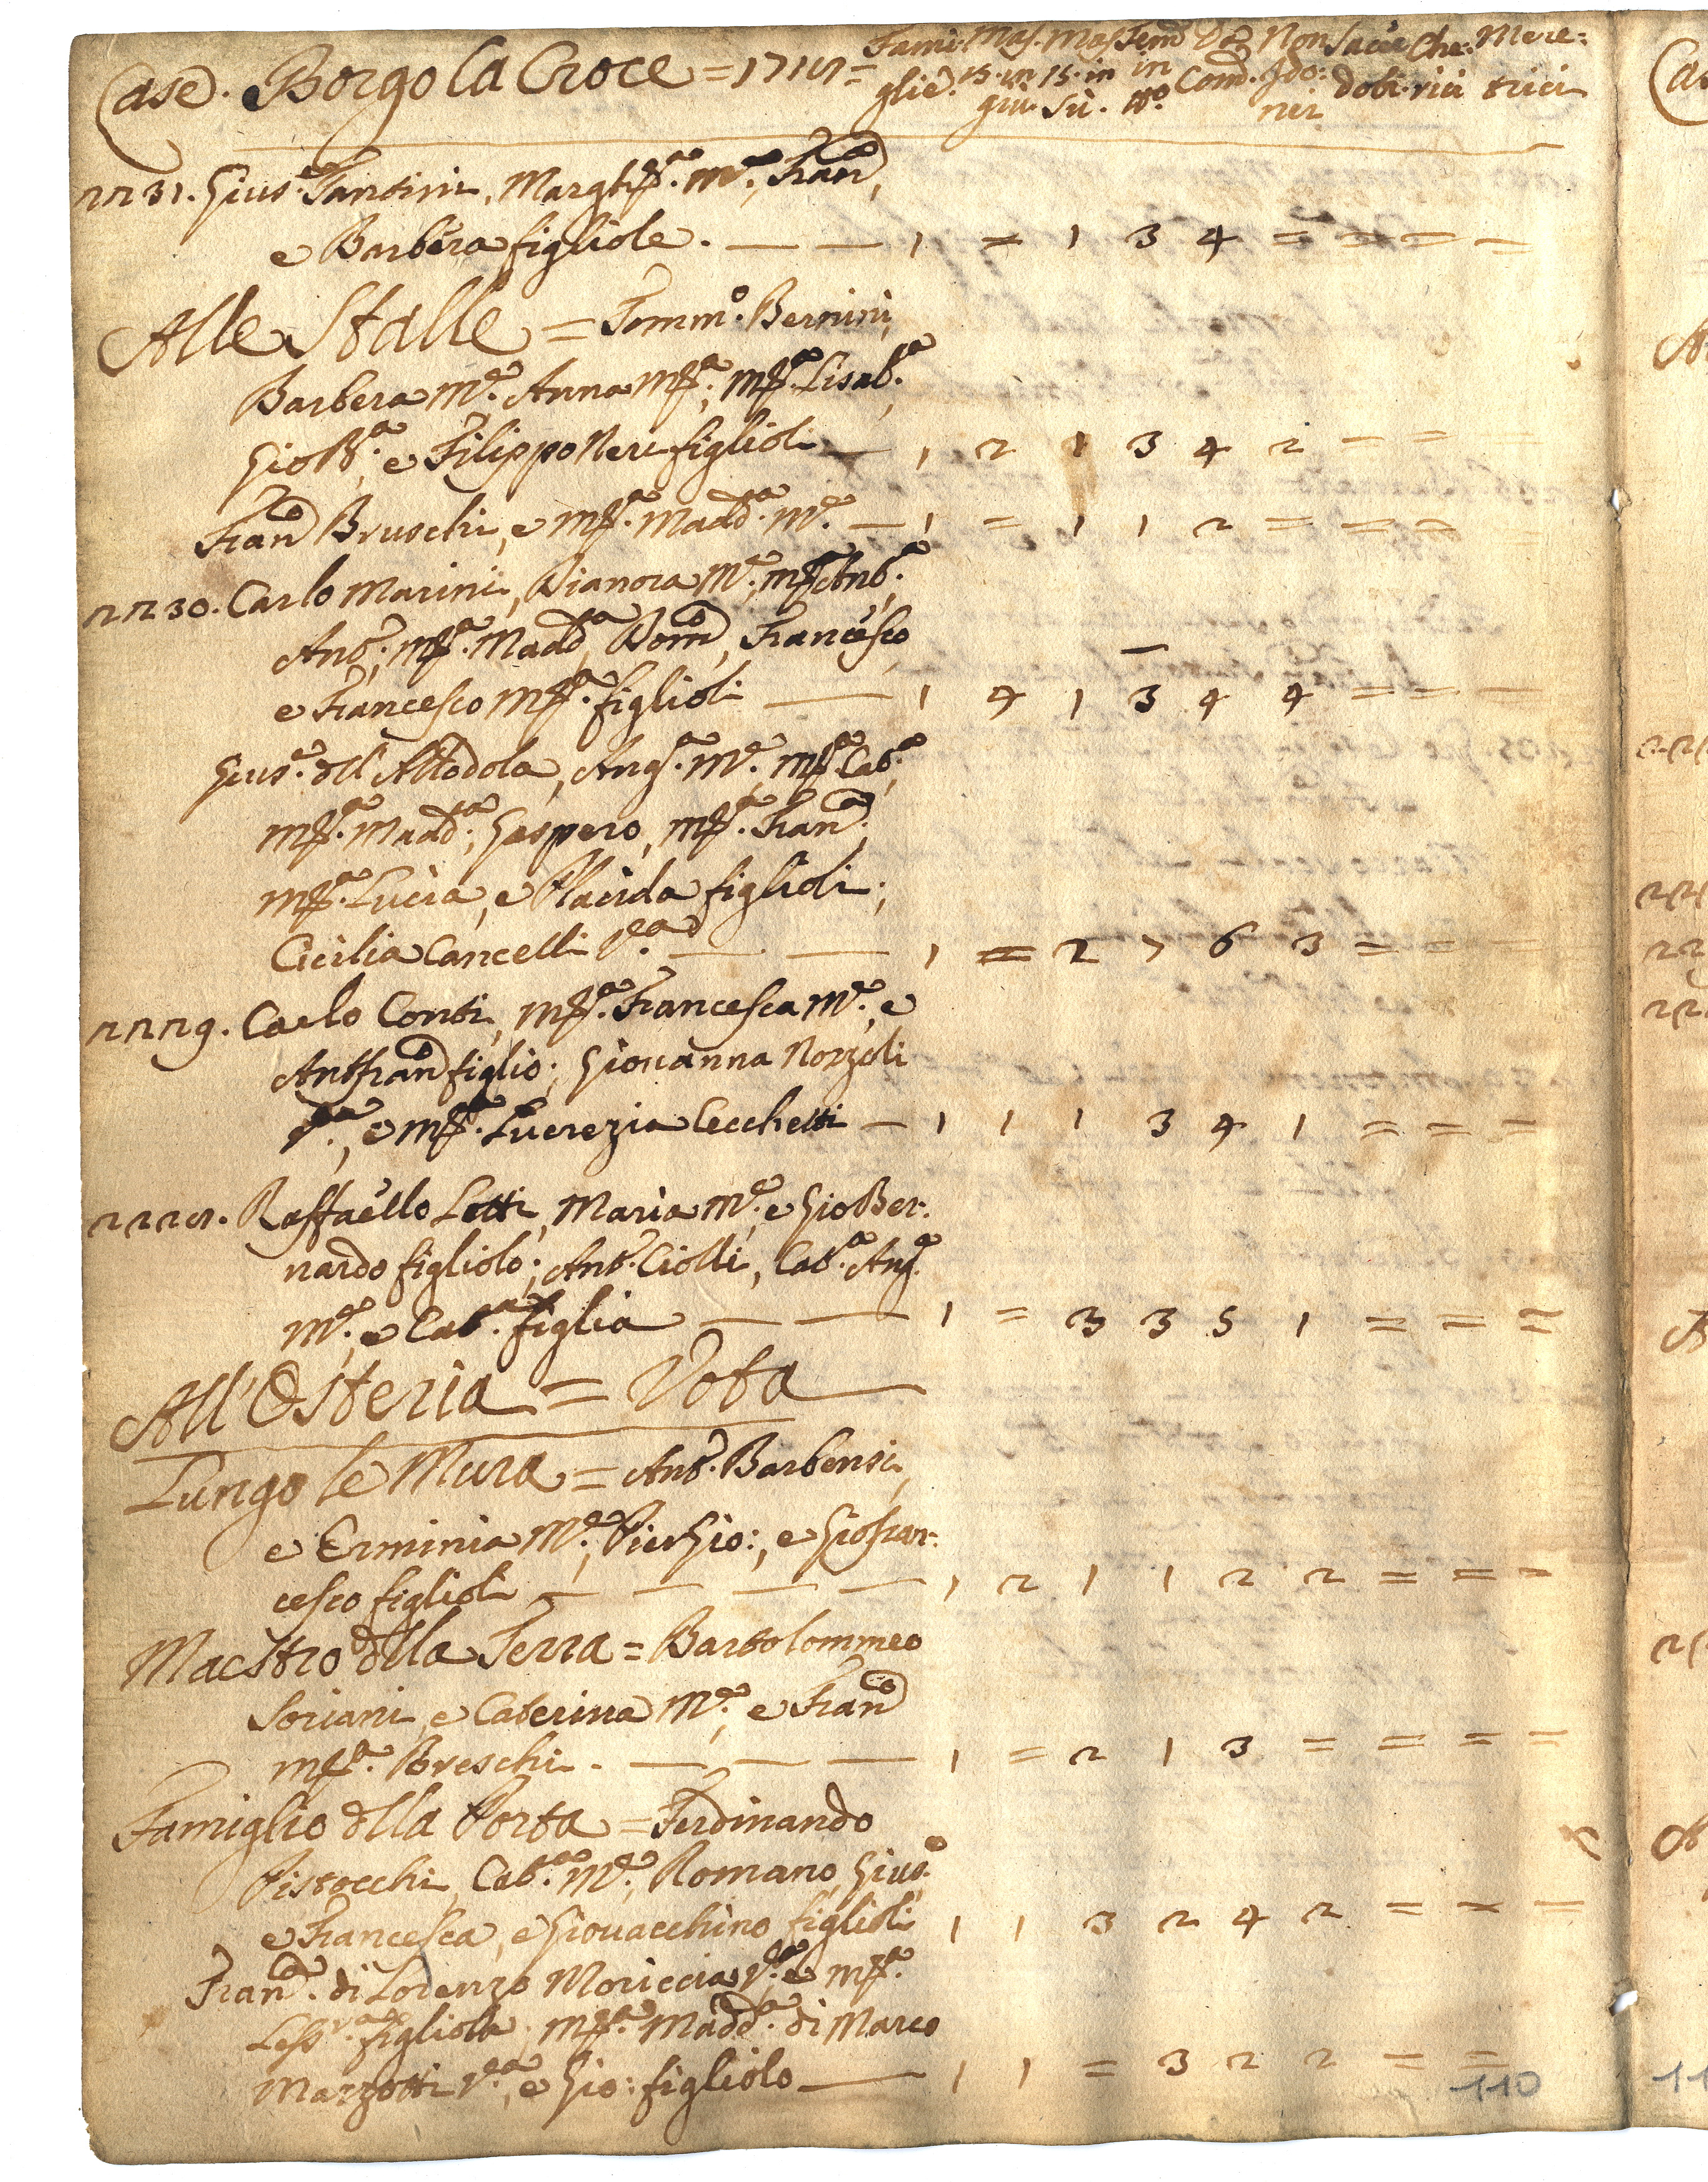 Case. Borgo la Croce = 1718 = Fami: Mas. Mas. Fem̃ Da Non Sacer Che: Mere:
glie. 15. in 15. in in Com̃. Ido: doti. rici trici
giù. Sù. nei
2231. Gius.e Fantini, Margh.ta M.e, Fran.ca,
e Barbera figliole. — — 1 = 1 3 4 = = = =
Alle Stalle = Tomm.o Bernini,
Barbera M.e Anna M.a, M.a Lisab.a
Gio B.a e Filippo Neri figlioli — 1 2 1 3 4 2 = = =
Fran.co Bruschi, e M.a Madd.a M.e — 1 = 1 1 2 = = = =
2230. Carlo Marini, Dianora M.e, M.a Ant.a,
Ant.o, M.a Madd.a Dom.co, Francesco
e Francesco M.a figlioli — 1 4 1 3 4 4 = = =
Gius.e del Allodola, Ang.a M.e M.a Cat.a
M.a Madd.a; Gaspero, M.a Fran.ca;
M.a Lucia, e Placida figlioli;
Cicilia Cancelli V.a — — 1 = 2 7 6 3 = = =
2229. Carlo Conti, M.a Francesca M.e, e
Ant.fran.co figlio; Giovanna Nozzoli
V.a, e M.a Lucrezia Cecchetti — 1 1 1 3 4 1 = = =
2228. Raffaello Lotti, Maria M.e, e Gio Ber:
nardo figliolo; Ant.o Ciolli, Cat.a Ang.a
M.e, e Cat.a figlia — — 1 = 3 3 5 1 = = =
All'Osteria = Vota
Lungo le Mura = Ant.o Barbensi,
e Erminia M.e, Pier Gio:, e Giofran:
cesco figlioli — — — — 1 2 1 1 2 2 = = =
Maestro della Terra = Bartolommeo
Soriani e Caterina M.e, e Fran.co
M.a Breschi. — — — 1 = 2 1 3 = = = =
Famiglio della Porta = Ferdinando
Pistocchi, Cat.a M.e, Romano, Gius.e
e Francesca, e Giovacchino figlioli 1 1 3 2 4 2 = = =
Fran.ca di Lorenzo Moriccia V.a e M.a
Less.ra figliola, M.a Madd.a di Marco
Mazzotti V.a, e Gio: figliolo — 1 1 = 3 2 2 = =
110